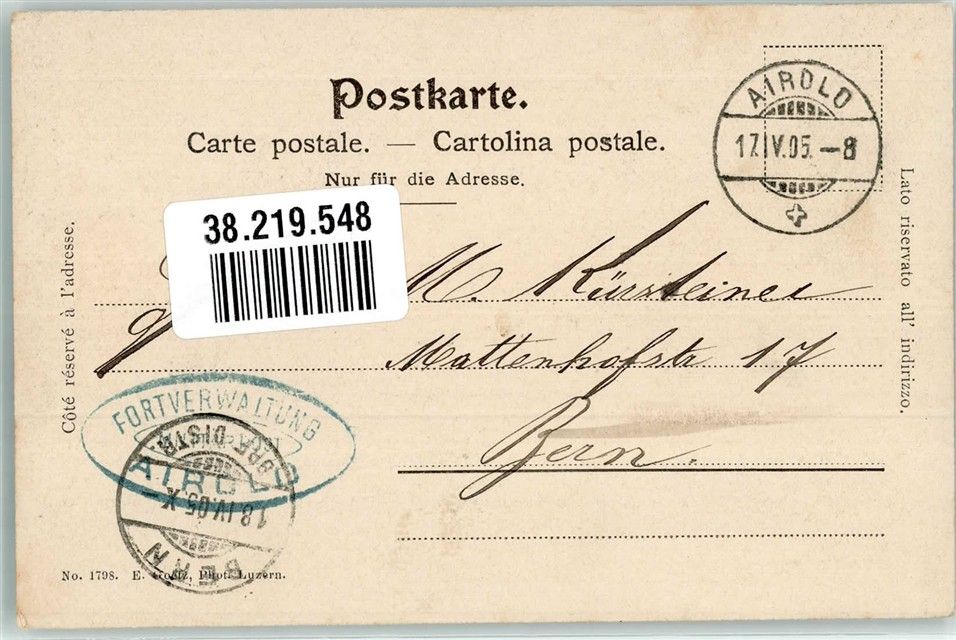 Postkarte.
Carte postale. — Cartolina postale.
Nur für die Adresse.
AIROLO
17.IV.05.–8
38.219.548
Côté réservé à l'adresse.
Lato riservato all' indirizzo.
M. Kürsteiner
Mattenhofstr 17
Bern.
FORTVERWALTUNG
AIROLO
BERN
18.IV.05.X
BR.A-DISTR.
No. 1798. E. Goetz, Phot. Luzern.